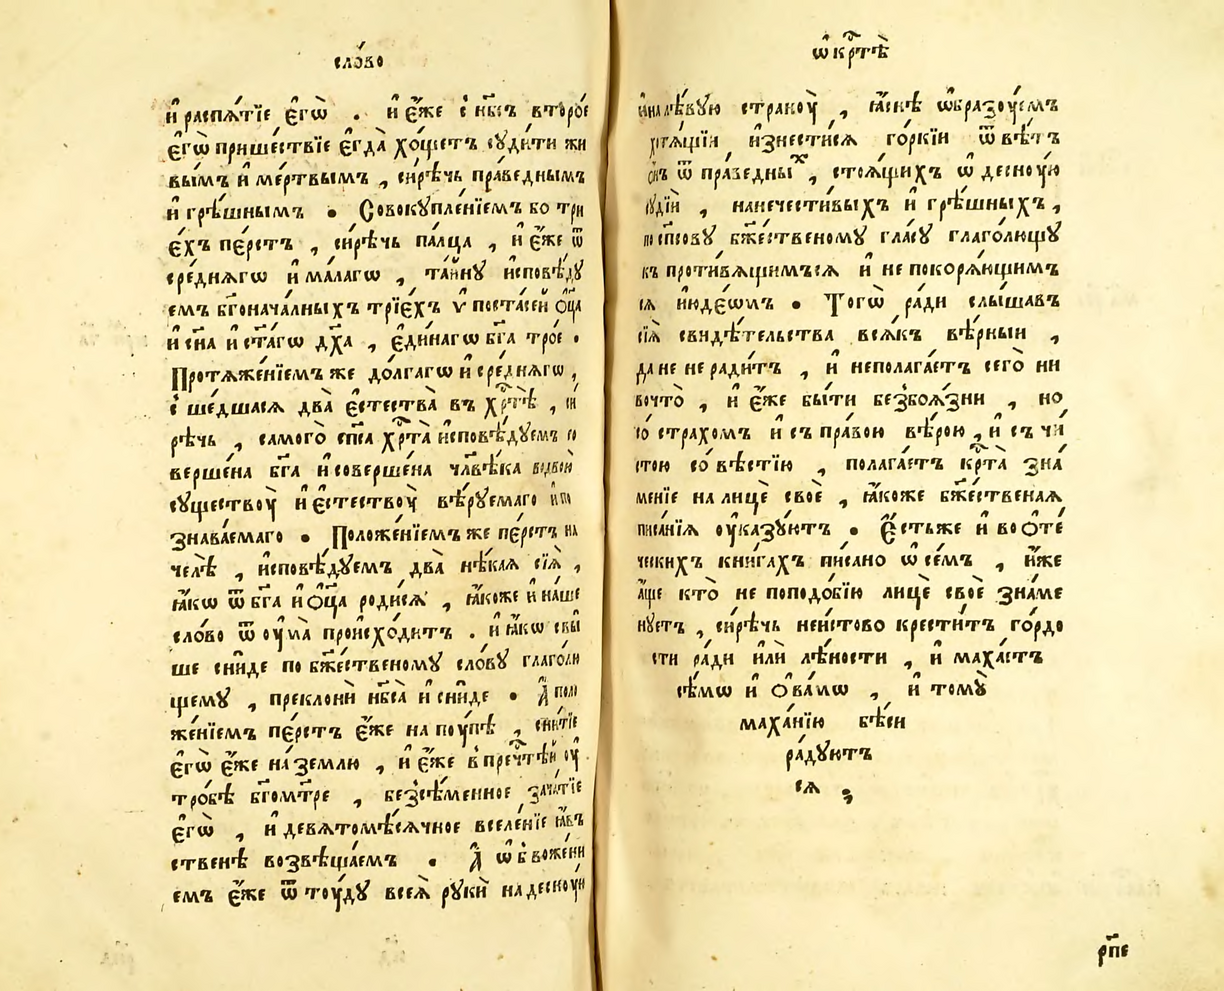 сло́во
и҆ распѧ́тїе є҆гѡ̀ . и҆ є҆́же с̾ нб҃съ второ́е
є҆гѡ̀ прише́ствїе є҆гда̀ хо́щетъ сꙋди́ти жи
вы́мъ и҆ ме́ртвымъ , си́рѣчь пра́веднымъ
и҆ грѣ́шнымъ . Совокꙋпле́нїемъ бо три
є҆́хъ пе́рстъ , си́рѣчь па́лца , и҆ є҆́же ѿ
сре́днѧгѡ и҆ ма́лагѡ , та́йнꙋ и҆сповѣ́дꙋ
емъ бг҃онача́лныхъ трїє́хъ ѵ҆поста́сей ѻ҆ц҃а
и҆ сн҃а и҆ ст҃а́гѡ дх҃а , є҆ди́нагѡ бг҃а троѐ .
Протѧже́нїемъ же до́лгагѡ и҆ сре́днѧгѡ ,
с̾шедшаѧсѧ два̀ є҆стества̀ въ хрⷭ҇тѣ̀ , си́
рѣчь , самого̀ сп҃са хрⷭ҇та̀ и҆сповѣ́дꙋемъ со
верше́на бг҃а и҆ соверше́на чл҃вѣ́ка вдвою̀
сꙋществоу̀ и҆ є҆стествоу̀ вѣ́рꙋемаго и҆ по
знава́емаго . Положе́нїемъ же пе́рстъ на
челѣ̀ , и҆сповѣ́дꙋемъ два̀ нѣ́каѧ сїѧ̀ ,
ꙗ҆́кѡ ѿ бг҃а и҆ ѻ҆ц҃а роди́сѧ , ꙗ҆́коже и҆ на́ше
сло́во ѿ оу҆ма̀ происхо́дитъ . и҆ ꙗ҆́кѡ свы́
ше сни́де по бжⷭ҇е́ственомꙋ сло́вꙋ глаго́лю
щемꙋ , преклонѝ нб҃са̀ и҆ сни́де . А҆ поло
же́нїемъ пе́рстъ є҆́же на поу́пѣ , сни́тїе
є҆гѡ̀ є҆́же на́ землю , и҆ є҆́же в̾ пречⷭ҇тѣ́й оу҆
тро́бѣ бг҃ом҃тре , безсѣ́менное зача́тїе
є҆гѡ̀ , и҆ девѧтомѣ́сѧчное вселе́нїе ꙗ҆́въ
ственѣ возвѣща́емъ . А҆ ѡ҆бвоже́ни
емъ є҆́же ѿтоу́дꙋ всеѧ̀ рꙋкѝ на десноую
ѡ҆ крⷭ҇тѣ̀
и҆ на лѣ́вꙋю страноу̀ , ꙗ҆́снѣ ѡ҆бразоу́емъ
хотѧ́щїи и҆знести́сѧ го́ркїи ѿвѣ́тъ
ѿ пра́ведныⷯ , стоѧ́щихъ ѡ҆ десноую
сꙋдїѝ , на нечести́выхъ и҆ грѣ́шныхъ ,
по сп҃совꙋ бжⷭ҇е́ственомꙋ гла́сꙋ глаго́лющꙋ
къ проти́вѧщимъсѧ и҆ не покорѧ́ющим̾
сѧ и҆юде́ѡмъ . Тогѡ̀ ра́ди слы́шавъ
сїѧ̀ свидѣ́тельства всѧ́къ вѣ́рныи ,
да не неради́тъ , и҆ неполага́етъ сего̀ ни
вочто̀ , и҆ є҆́же бы́ти безбоѧ́зни , но
со́ страхомъ и҆ съ пра́вою вѣ́рою , и҆ съ чи́
стою со́вѣстїю , полага́етъ крⷭ҇та̀ зна́
менїе на лицѐ своѐ , ꙗ҆́коже бжⷭ҇е́ственаѧ
писа́нїѧ оу҆ка́зꙋютъ . Є҆́стьже и҆ во ѻ҆те́
ческихъ кни́гахъ пи́сано ѡ҆ се́мъ , и҆́же
а҆́ще кто̀ не поподо́бїю лицѐ своѐ зна́ме
нꙋетъ , си́рѣчь неи́стово крести́тъ го́рдо
сти ра́ди и҆лѝ лѣ́ности , и҆ маха́етъ
сѣ́мѡ и҆ ѻ҆ва́мѡ , и҆ томꙋ̀
маха́нїю бѣ́си
ра́дꙋютъ
сѧ ;
рп҃е